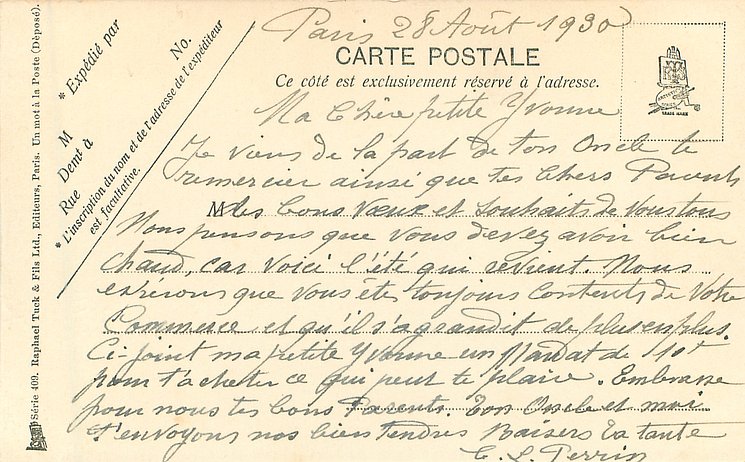 Paris 28 Août 1930
CARTE POSTALE
Ce côté est exclusivement réservé à l'adresse.
* Expédié par
No.
M
Demt à
Rue
* L'inscription du nom et de l'adresse de l'expéditeur
est facultative.
Série 409. Raphael Tuck & Fils Ltd., Editeurs, Paris. Un mot à la Poste (Déposé).
TRADE MARK
Ma Chère petite Yvonne
Je viens de la part de ton Oncle te
remercier ainsi que tes Chers Parents
M des bons Vœux et Souhaits de Vous tous
Nous pensons que Vous devez avoir bien
chaud, car voici l'été qui revient. Nous
espérons que Vous êtes toujours Contents de Votre
Commerce et qu'il s'agrandit de plus en plus.
Ci-joint ma petite Yvonne un Mandat de 10f
pour t'acheter ce qui peut te plaire. Embrasse
pour nous tes bons Parents. Ton Oncle et moi
t'envoyons nos bien tendres Baisers ta tante
L. Perrin